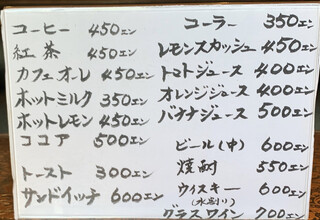 コーヒー 450エン
紅茶 450エン
カフェオーレ 450エン
ホットミルク 350エン
ホットレモン 450エン
ココア 500エン
トースト 300エン
サンドイッチ 600エン
コーラー 350エン
レモンスカッシュ 450エン
トマトジュース 400エン
オレンジジュース 400エン
バナナジュース 500エン
ビール(中) 600エン
焼酎 550エン
ウイスキー 600エン
(水割り)
グラスワイン 700エン